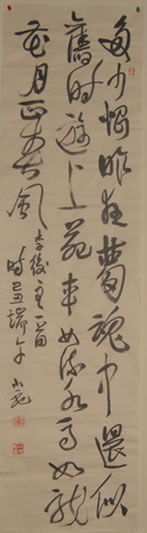 多少恨昨夜夢魂中還似
舊時遊上苑車如流水馬如龍
花月正春風
李後主一首
時己丑端午